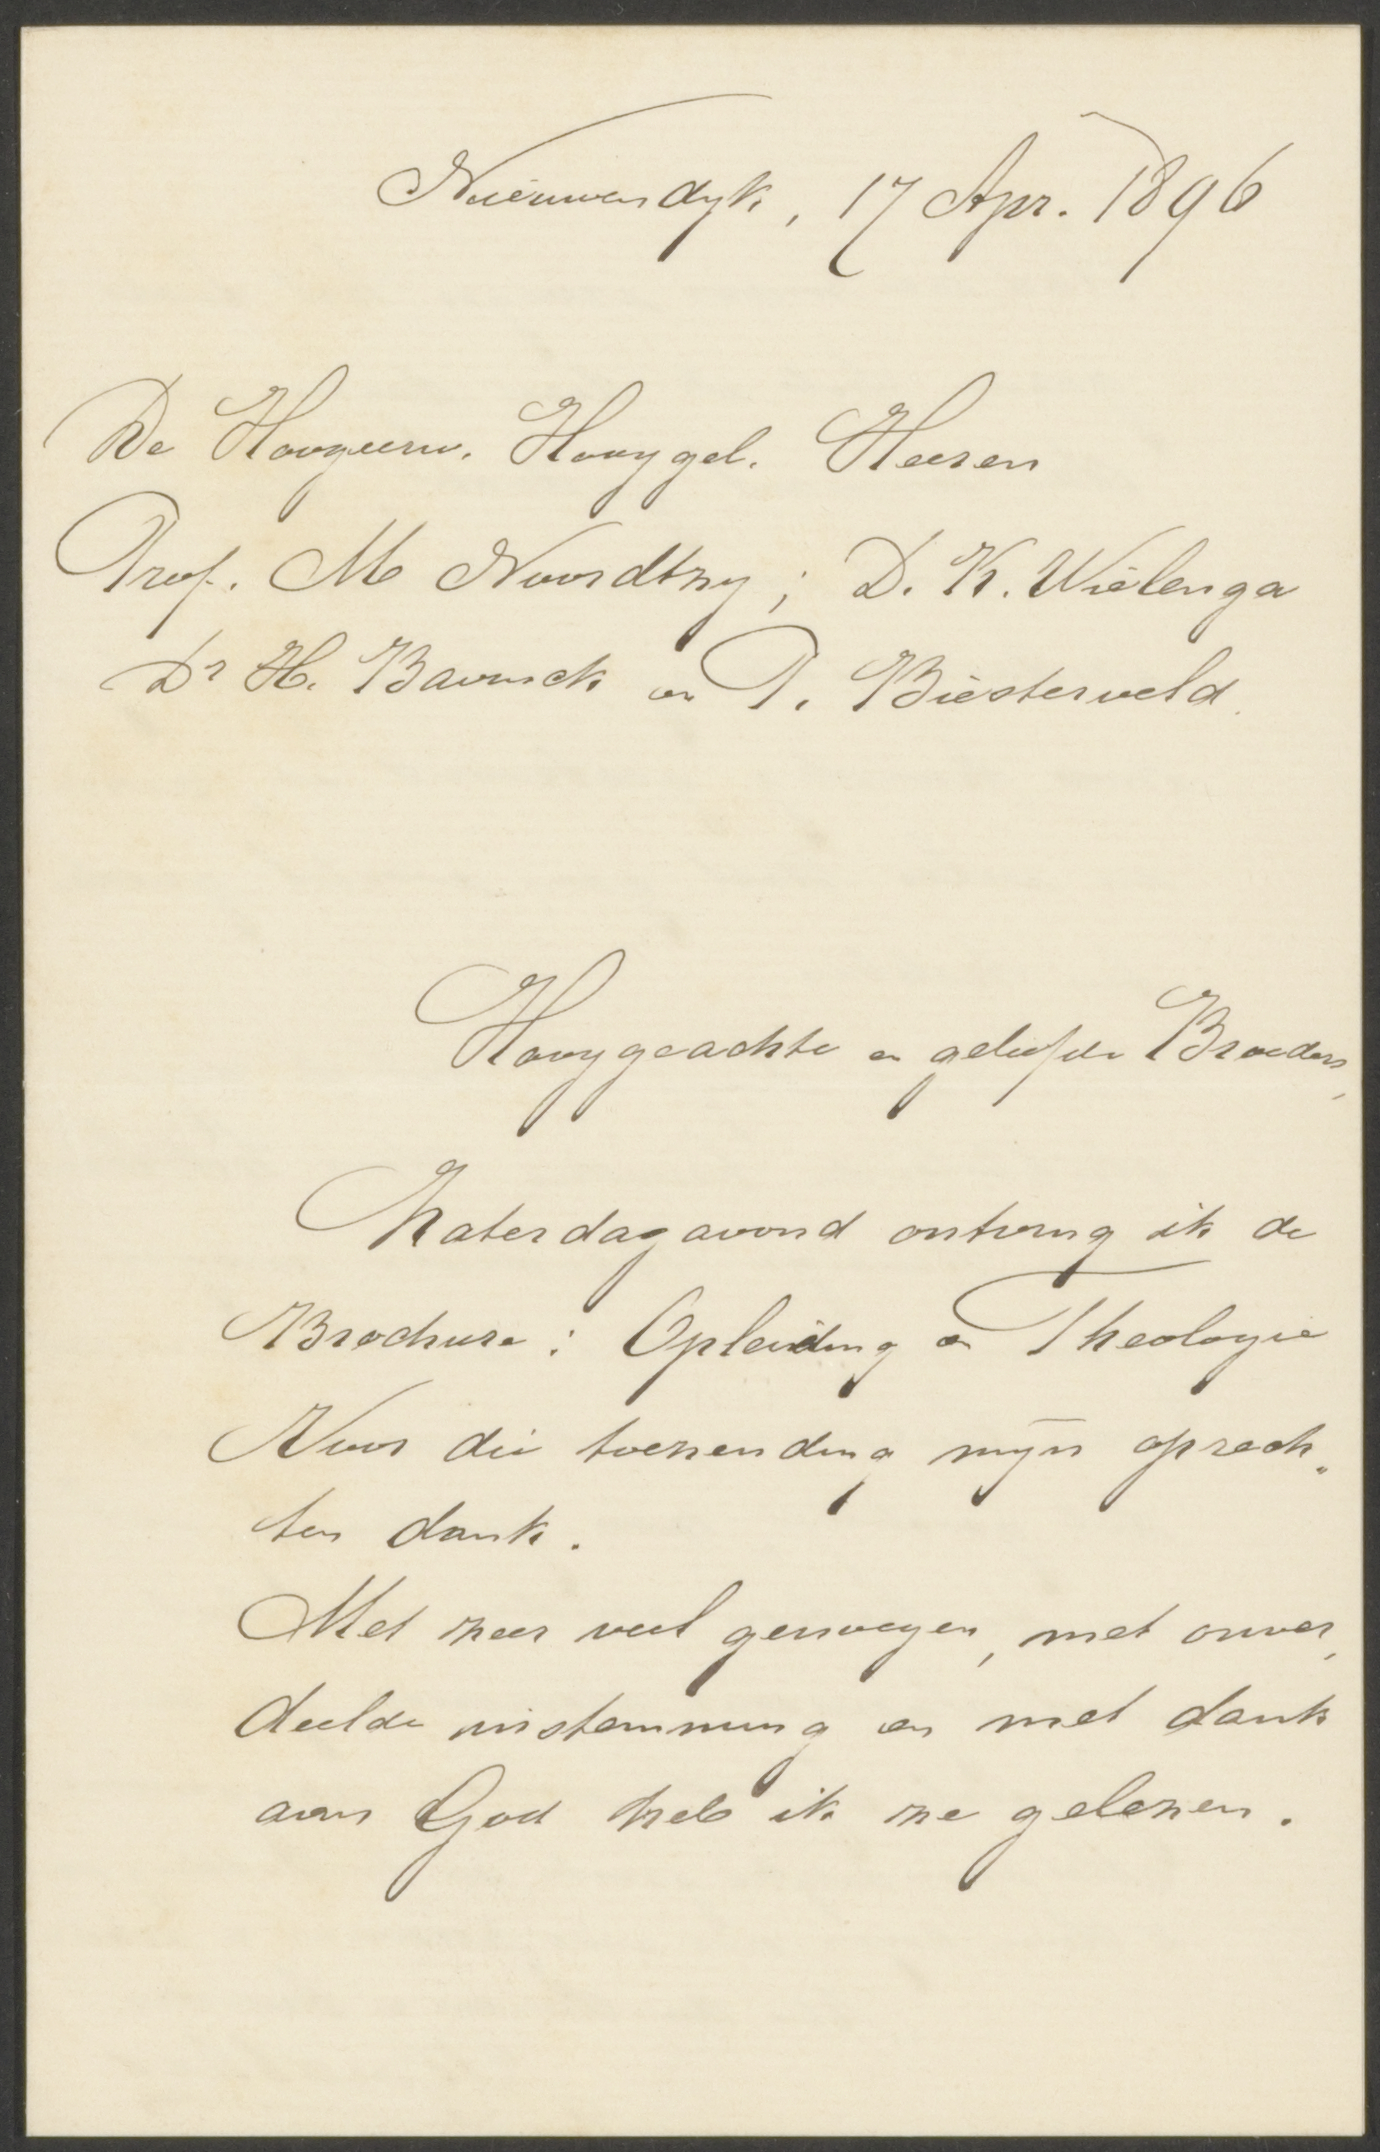 Nieuwendijk, 17 Apr. 1896
De Hoogeerw. Hooggel. Heeren
Prof. M Noordtzy; D. K. Wielenga
Dr H. Bavinck en P. Biesterveld.
Hooggeachte en geliefde Broeders,
Zaterdagavond ontving ik de
Brochure: Opleiding en Theologie
Voor die toezending mijn oprech„
ten dank.
Met zeer veel genoegen, met onver„
deelde instemming en met dank
aan God heb ik ze gelezen.